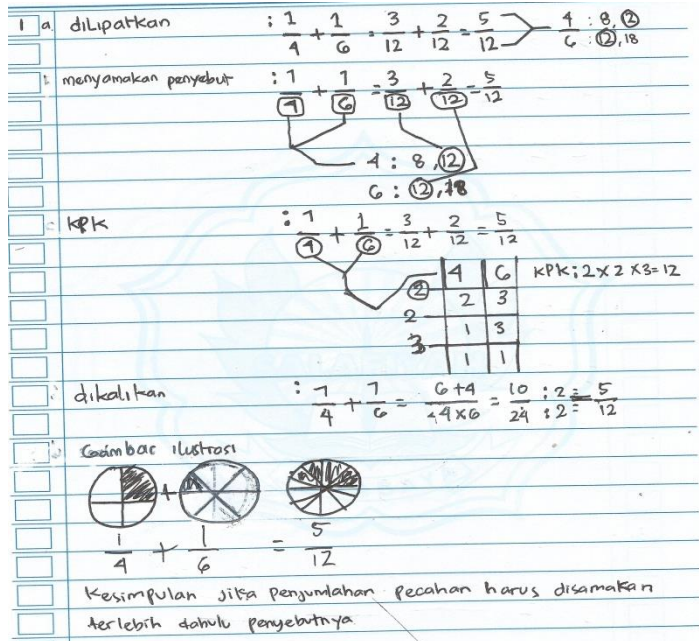 1 a. diLipatkan : 1/4 + 1/6 = 3/12 + 2/12 = 5/12 4 : 8, 12
6 : 12, 18
menyamakan penyebut : 1/4 + 1/6 = 3/12 + 2/12 = 5/12
4 : 8, 12
6 : 12, 18
KPK : 1/4 + 1/6 = 3/12 + 2/12 = 5/12
4 6 KPK : 2 x 2 x 3 = 12
2 2 3
2 1 3
3 1 1
dikalikan : 1/4 + 1/6 = 6+4/4x6 = 10/24 : 2 = : 2 = 5/12
Gambar ilustrasi
+
1/4 + 1/6 = 5/12
Kesimpulan jika penjumlahan pecahan harus disamakan
terlebih dahulu penyebutnya